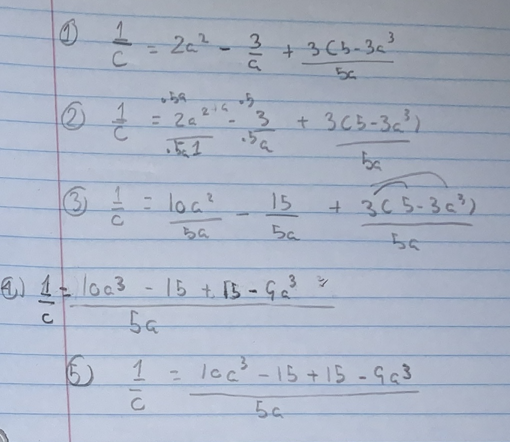 ① 1/c = 2a² - 3/a + 3(5-3a³/5a
② 1/c = .5a 2a²⁺ᵃ/.5a1 - .5 3/.5a + 3(5-3a³)/5a
③ 1/c = 10a²/5a - 15/5a + 3(5-3a³)/5a
④) 1/c = 10a³ - 15 + 15 - 9a³/5a
⑤) 1/c = 10a³ - 15 + 15 - 9a³/5a